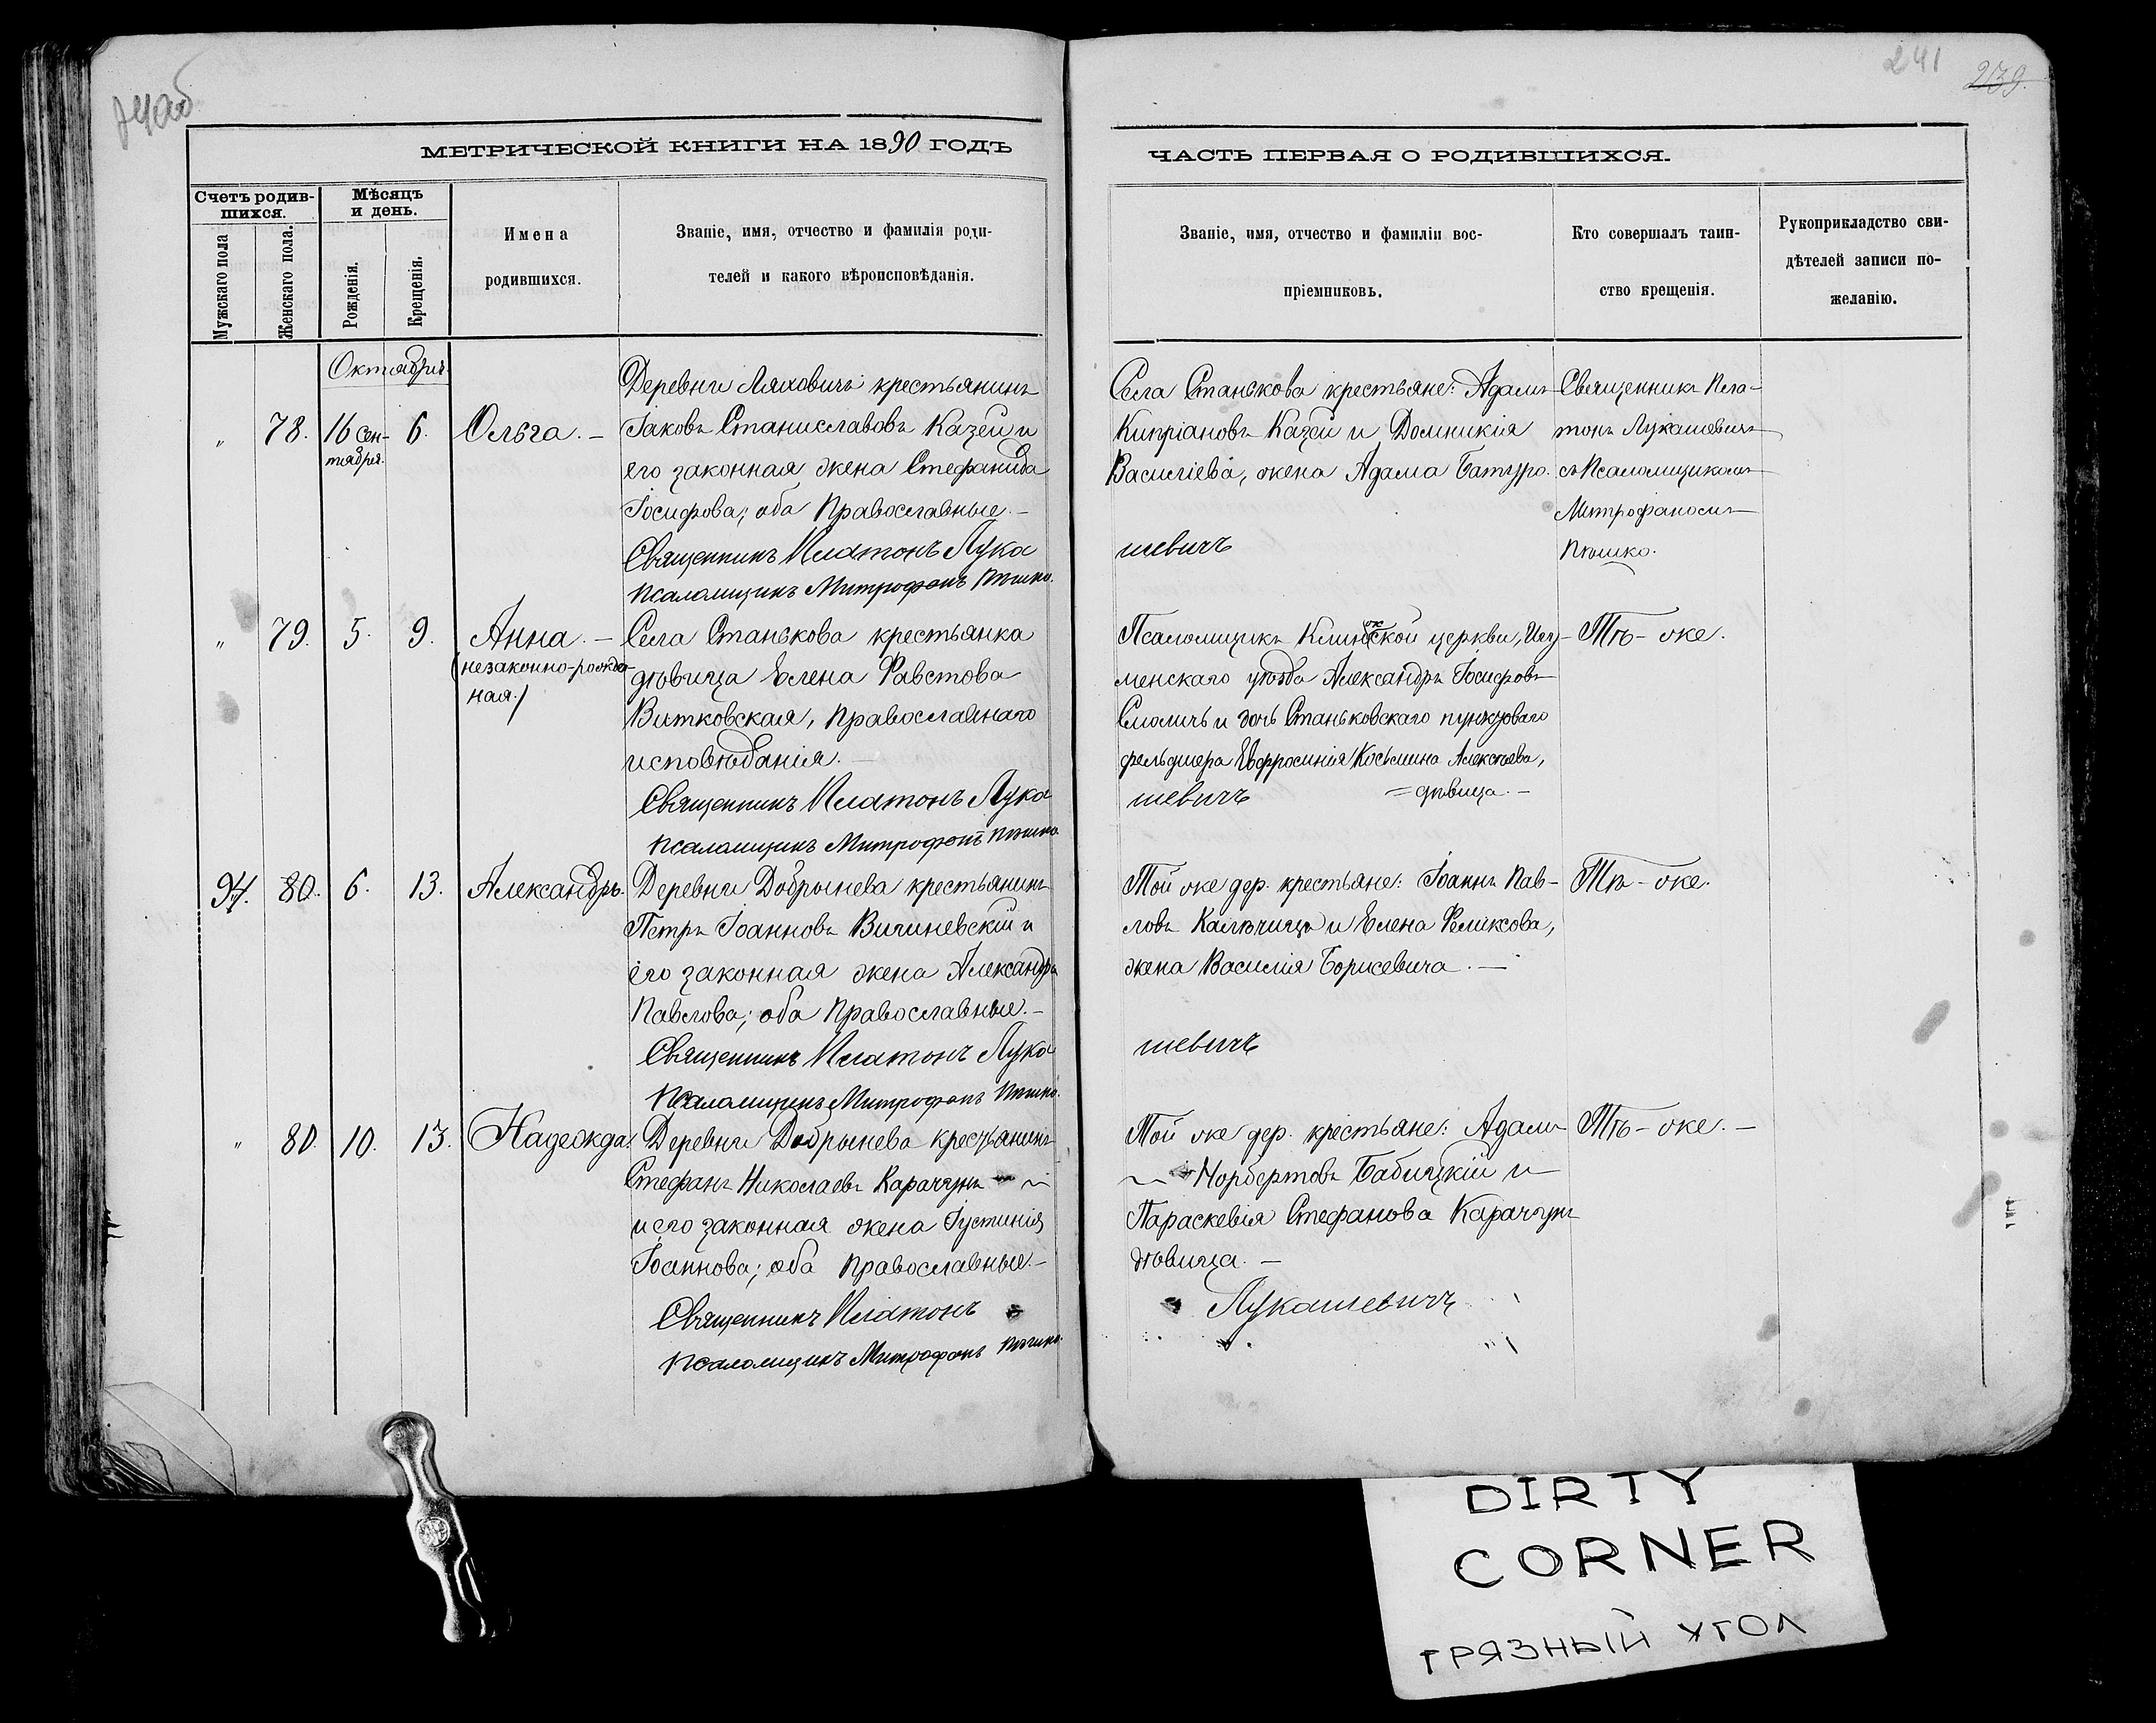 241
239.
МЕТРИЧЕСКОЙ КНИГИ НА 1890 ГОДЪ
ЧАСТЬ ПЕРВАЯ О РОДИВШИХСЯ.
Счетъ родив-
шихся.
Мужскаго пола
Женскаго пола.
Мѣсяцъ
и день.
Рожденія.
Крещенія.
Имена
родившихся.
Званіе, имя, отчество и фамилія роди-
телей и какого вѣроисповѣданія.
Званіе, имя, отчество и фамиліи вос-
пріемниковъ.
Кто совершалъ таин-
ство крещенія.
Рукоприкладство сви-
дѣтелей записи по-
желанію.
Октября
„ 78. 16 Сен-
тября. 6. Ольга. –
Деревни Ляховичъ крестьянинъ
Іаковъ Станиславовъ Казей и
его законная жена Стефанида
Іосифова; оба Православные. –
Священникъ Платонъ Лука
Псаломщикъ Митрофанъ Пѣшко.
Села Станькова крестьяне: Адамъ
Кипріановъ Казей и Домникія
Василіева, жена Адама Батуро.
шевичъ
Священникъ Пла-
тонъ Лукашевичъ
съ Псаломщикомъ
Митрофаномъ
Пѣшко.
„ 79. 5. 9. Анна. –
(незаконно-рожден-
ная.)
Села Станькова крестьянка
дѣвица Елена Фавстова
Витковская, Православнаго
исповѣданія. –
Священникъ Платонъ Лука
Псаломщикъ Митрофанъ Пѣшко
Псаломщикъ Клинокской церкви, Игу-
менскаго уѣзда Александръ Іосифовъ
Смоличъ и дочь Станьковскаго пунктоваго
фельдшера Евфросинія Косьмина Алексѣева,
= дѣвица. –
шевичъ
Тѣ-же.
94. 80. 6. 13. Александръ.
Деревни Добрынева крестьянинъ
Петръ Іоанновъ Вичиневскій и
его законная жена Александра
Павлова; оба Православные. –
Священникъ Платонъ Лука
Псаломщикъ Митрофанъ Пѣшко.
Той же дер. крестьяне: Іоаннъ Пав-
ловъ Калѣчицъ и Елена Феликсова,
жена Василія Борисевича. –
шевичъ
Тѣ-же.
„ 80. 10. 13. Надежда.
Деревни Добрынева крестьянинъ
Стефанъ Николаевъ Карачунъ
и его законная жена Іустинія
Іоаннова; оба Православные. –
Священникъ Платонъ
Псаломщикъ Митрофанъ Пѣшко.
Той же дер. крестьяне: Адамъ
Норбертовъ Бабицкій и
Параскевія Стефанова Карачунъ
дѣвица. –
Лукашевичъ
Тѣ-же. –
DIRTY
CORNER
ГРЯЗНЫЙ УГОЛ